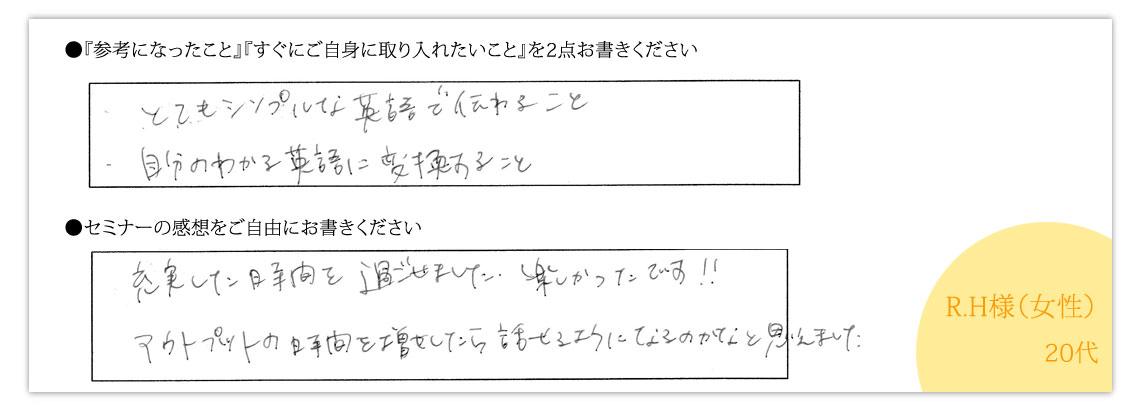 ●『参考になったこと』『すぐにご自身に取り入れたいこと』を2点お書きください
・とてもシンプルな英語で伝わること
・自分のわかる英語に変換すること
●セミナーの感想をご自由にお書きください
充実した時間を過ごせました。楽しかったです!!
アウトプットの時間を増やしたら話せるようになるのかなと思えました
R.H様（女性）
20代